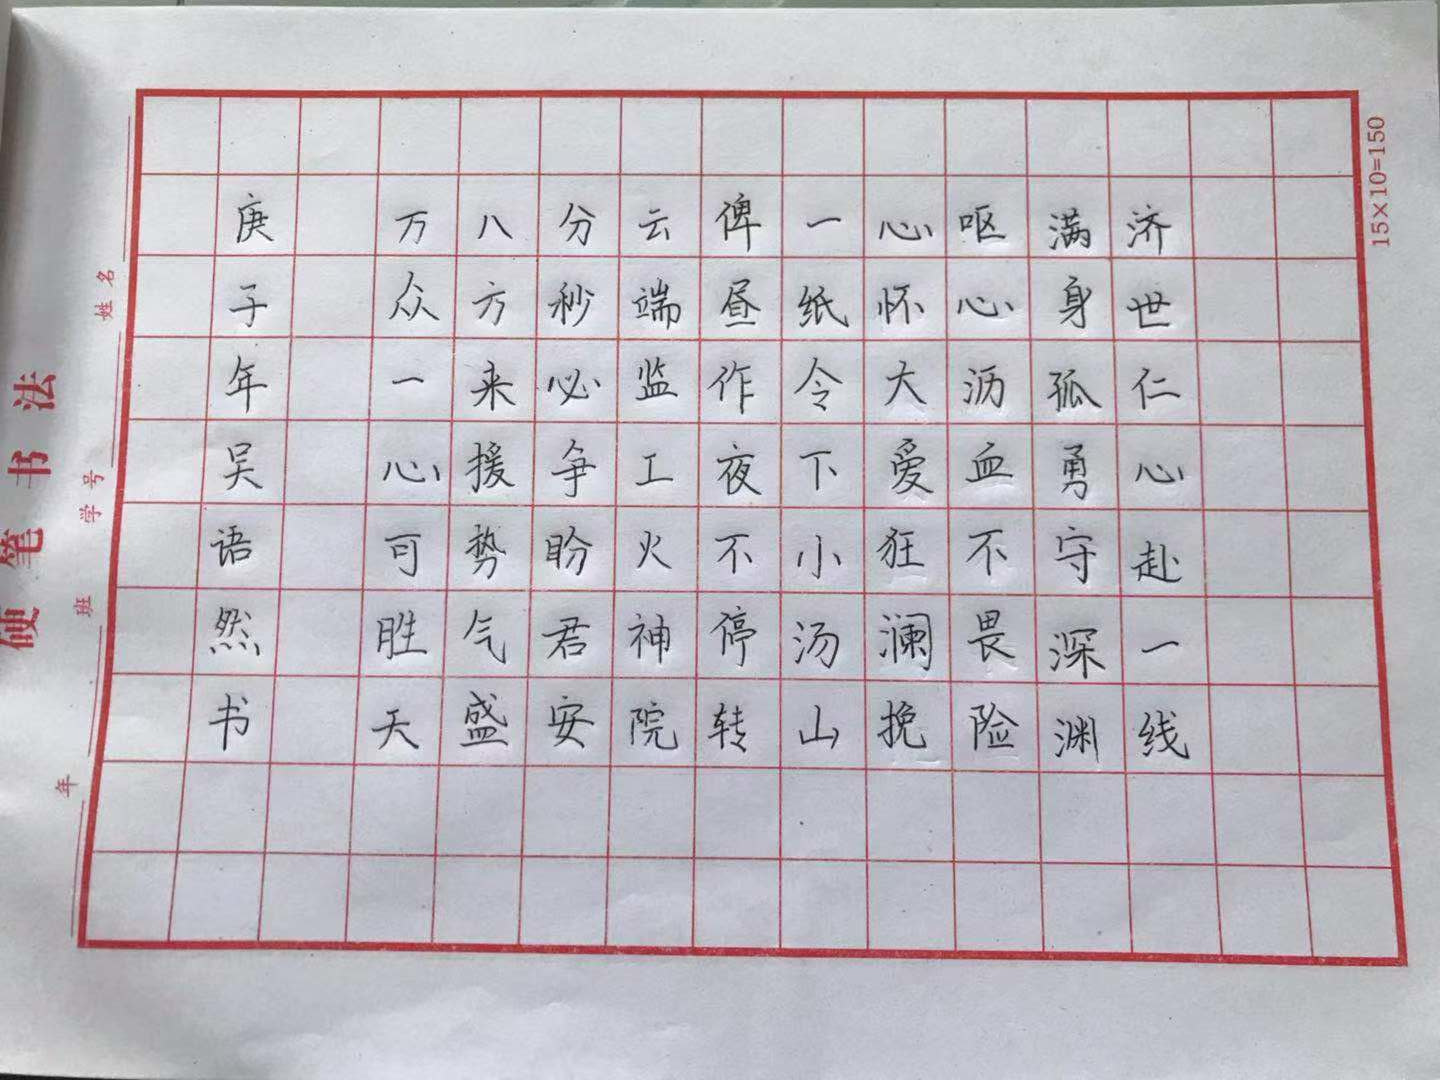 济世仁心赴一线
满身孤勇守深渊
呕心沥血不畏险
心怀大爱狂澜挽
一纸令下小汤山
俾昼作夜不停转
云端监工火神院
分秒必争盼君安
八方来援势气盛
万众一心可胜天
庚子年吴语然书
硬笔书法
年 班 学号 姓名
15×10=150